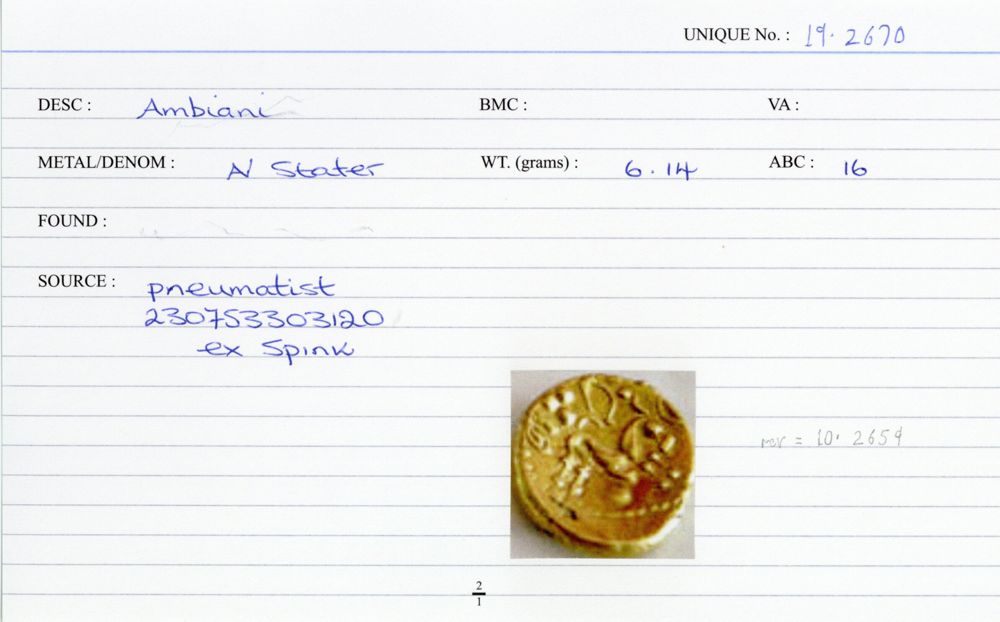 UNIQUE No. : 19.2670
DESC : Ambiani BMC : VA :
METAL/DENOM : N Stater WT. (grams) : 6.14 ABC : 16
FOUND :
SOURCE : pneumatist
230753303120
ex Spink
rev = 10. 2659
2
1